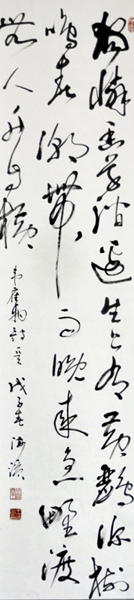 独怜幽草涧边生上有黄鹂深树
鸣春潮带雨晚来急野渡
无人舟自横
韦应物诗一首 戊子春